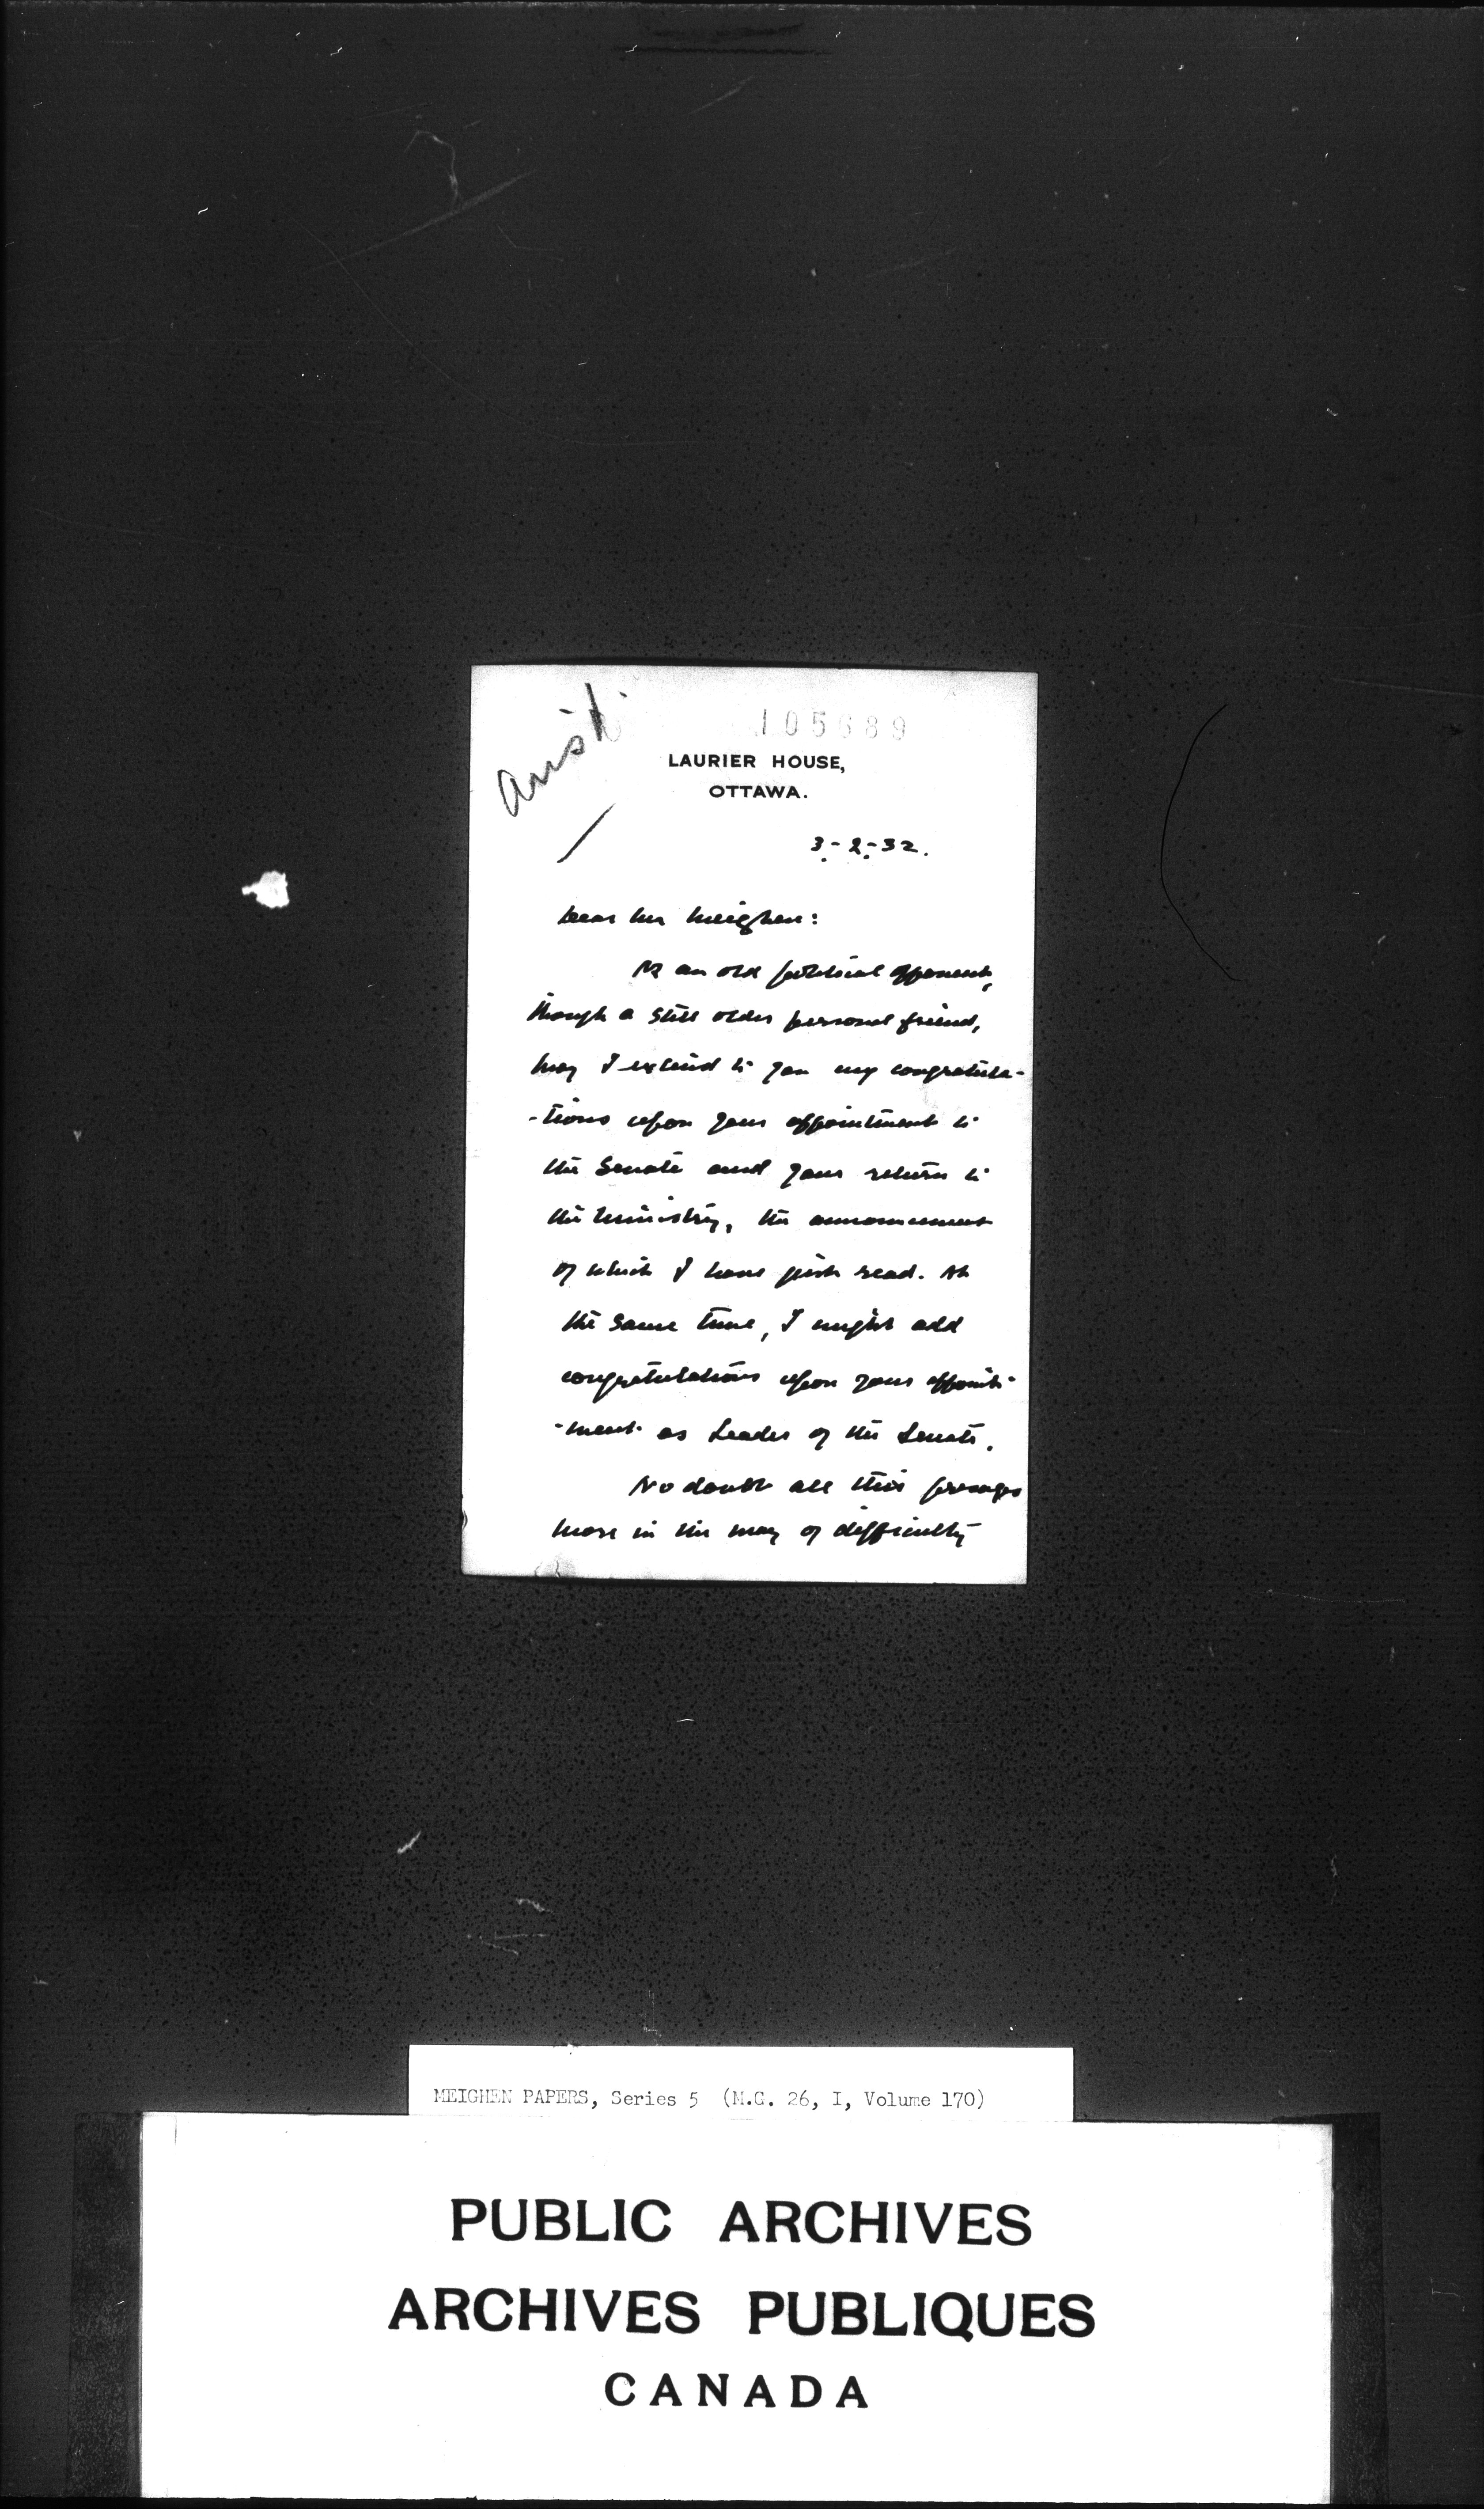 ansd.
105689
LAURIER HOUSE,
OTTAWA.
3-2-32.
Dear Mr Meighen:
As an old political opponent,
though a still older personal friend,
may I extend to you my congratula-
-tions upon your appointment to
the Senate and your return to
the Ministry, the announcement
of which I have just read. At
the same time, I might add
congratulations upon your appoint-
-ment as Leader of the Senate.
No doubt all this presages
more in the way of difficulty
MEIGHEN PAPERS, Series 5 (M.G. 26, I, Volume 170)
PUBLIC ARCHIVES
ARCHIVES PUBLIQUES
CANADA